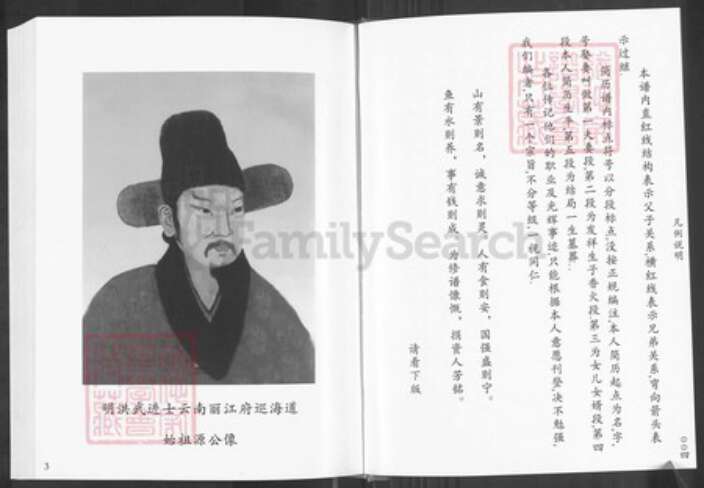 明洪武进士云南丽江府巡海道
始祖源公像
3
凡例说明
本谱内直红线结构表示父子关系，横红线表示兄弟关系，弯向箭头表
示过继。
简历谱内标点符号以分段标点，没按正规编注，本人简历起点为名字，
号娶妻叫做第一大妻段，第二段为发祥生子香火段，第三为女儿女婿段，第四
段本人简历生平，第五段为结局一生墓葬。
各位传记他们的职业及光辉事迹，只能根据本人意愿刊登，决不勉强，
我们编者只有一个宗旨，不分等级，一视同仁。
山有景则名，诚意求则灵。人有食则安，国强盛则宁。
鱼有水则养，事有钱则成。为修谱慷慨，捐资人芳铭。
请看下版
〇〇四
FamilySearch